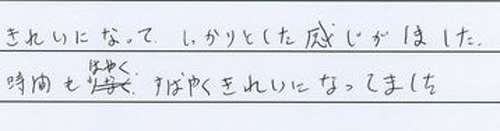 きれいになって、しっかりとした感じがしました。
時間もはやく、すばやくきれいになってました